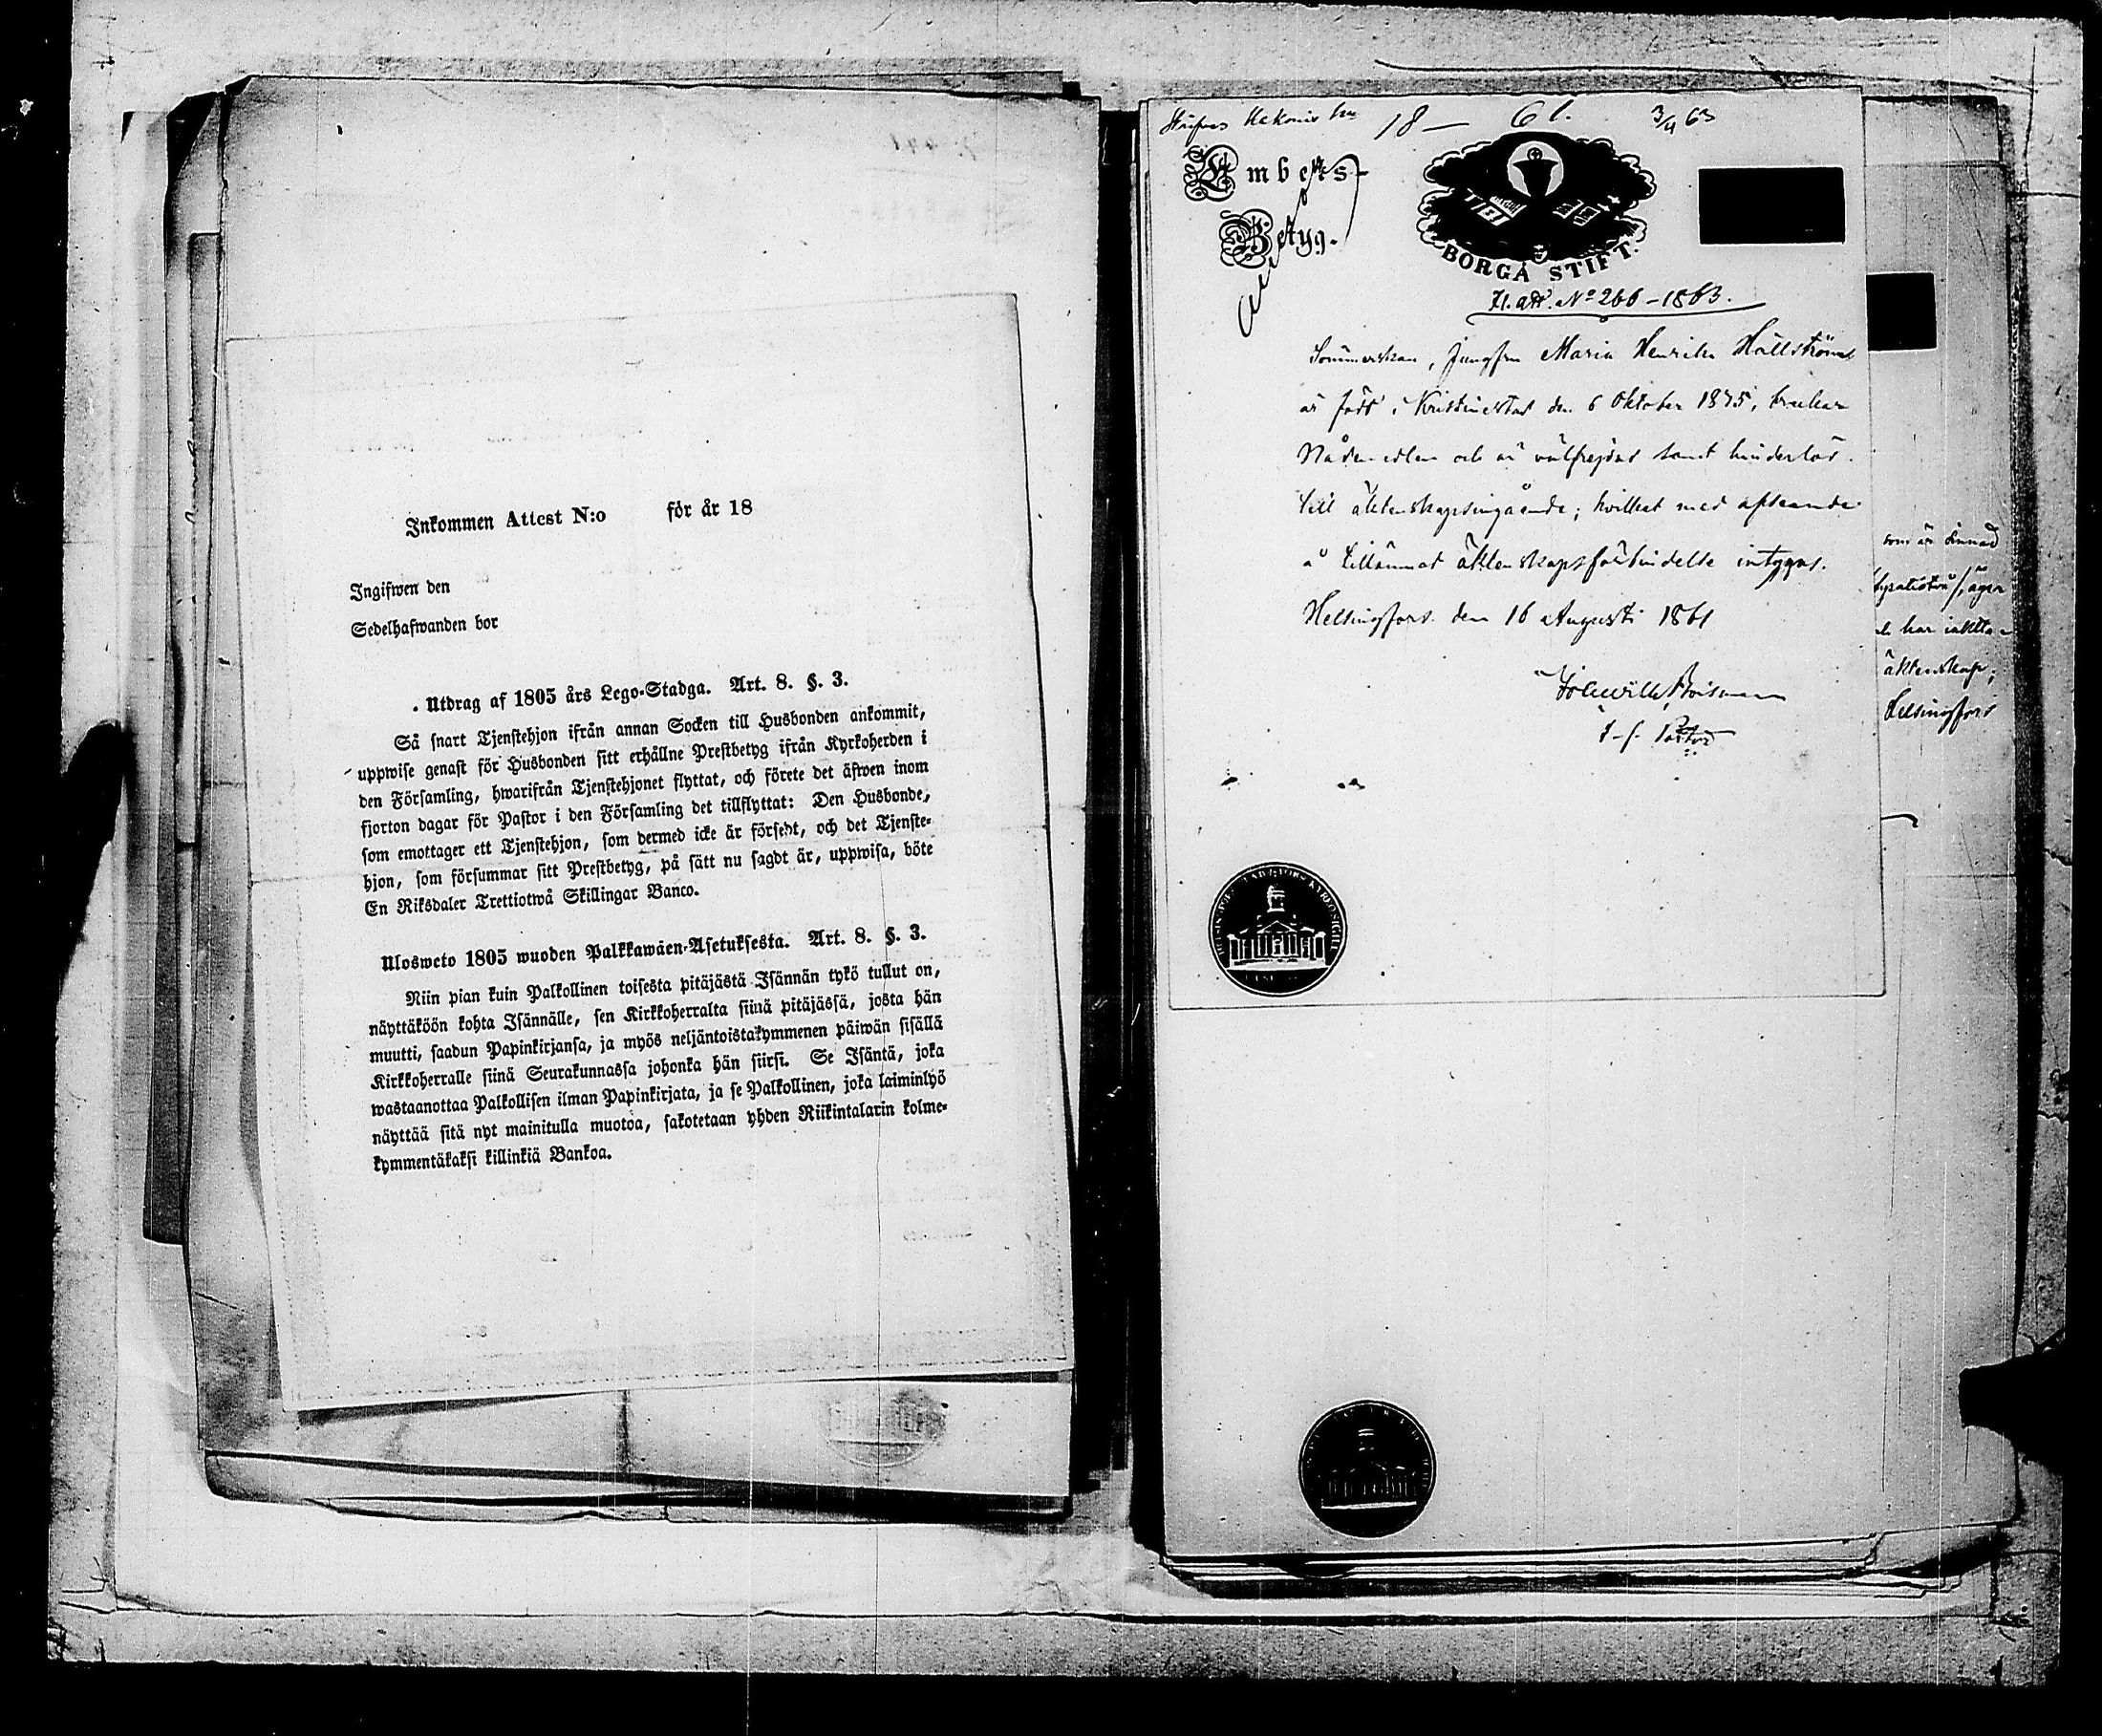 Inkommen Attest N:o för år 18
Ingifwen den
Sedelhafwanden bor
Utdrag af 1805 års Lego-Stadga. Art. 8. §. 3.
Så snart Tjenstehjon ifrån annan Socken till Husbonden ankommit,
uppwise genast för Husbonden sitt erhållne Prestbetyg ifrån Kyrkoherden i
den Församling, hwarifrån Tjenstehjonet flyttat, och förete det äfwen inom
fjorton dagar för Pastor i den Församling det tillflyttat: Den Husbonde,
som emottager ett Tjenstehjon, som dermed icke är försedt, och det Tjenste-
hjon, som försummar sitt Prestbetyg, på sätt nu sagdt är, uppwisa, böte
En Riksdaler Trettiotwå Skillingar Banco.
Ulosweto 1805 wuoden Palkkawäen-Asetuksesta. Art. 8. §. 3.
Niin pian kuin Palkollinen toisesta pitäjästä Isännän tykö tullut on,
näyttäköön kohta Isännälle, sen Kirkkoherralta siinä pitäjässä, josta hän
muutti, saadun Papinkirjansa, ja myös neljäntoistakymmenen päiwän sisällä
Kirkkoherralle siinä Seurakunnassa johonka hän siirsi. Se Isäntä, joka
wastaanottaa Palkollisen ilman Papinkirjata, ja se Palkollinen, joka laiminlyö
näyttää sitä nyt mainitulla muotoa, sakotetaan yhden Riikintalarin kolme-
kymmentäkaksi killinkiä Bankoa.
18— 61. 3/4 63
Embets-
Betyg.
BORGÅ STIFT.
Fl. att. No 266 – 1863.
Sömmerskan, Jungfru Maria Henrika Hällström
är född i Kristinestad den 6 Oktober 1835, brukar
Nådemedlen och är välfrejdad samt hinderlös
till äktenskapsingående; hvilket med afseende
å tillämnad äktenskapsförbindelse intygas.
Helsingfors den 16 Augusti 1861
t.f. Pastor
som är sinnad
äger
har iaktta-
äktenskap;
Helsingfors